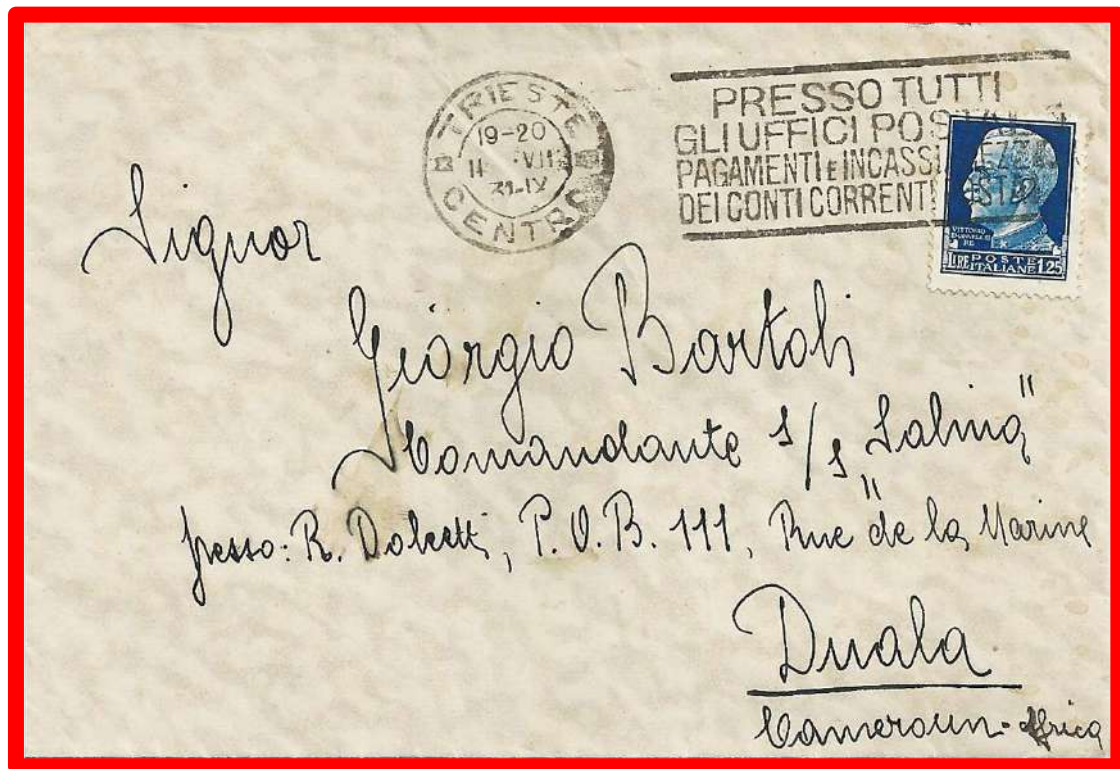 TRIESTE
CENTRO
19-20
31-IX
PRESSO TUTTI
GLI UFFICI POSTALI
PAGAMENTI E INCASSI
DEI CONTI CORRENTI
VITTORIO
RE
LIRE POSTE ITALIANE 1.25
Signor
Giorgio Bartoli
Comandante s/s "Salina"
presso: R. Dolcetti, P.O.B. 111, Rue de la Marine
Duala
Cameroun - Africa